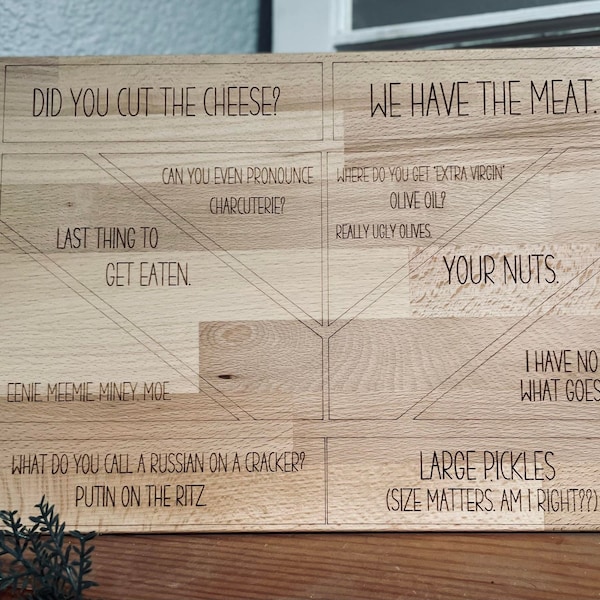 DID YOU CUT THE CHEESE?
WE HAVE THE MEAT.
CAN YOU EVEN PRONOUNCE
CHARCUTERIE?
WHERE DO YOU GET "EXTRA VIRGIN"
OLIVE OIL?
REALLY UGLY OLIVES.
LAST THING TO
GET EATEN.
YOUR NUTS.
EENIE, MEEMIE, MINEY, MOE
I HAVE NO
WHAT GOES
WHAT DO YOU CALL A RUSSIAN ON A CRACKER?
PUTIN ON THE RITZ
LARGE PICKLES
(SIZE MATTERS. AM I RIGHT??)